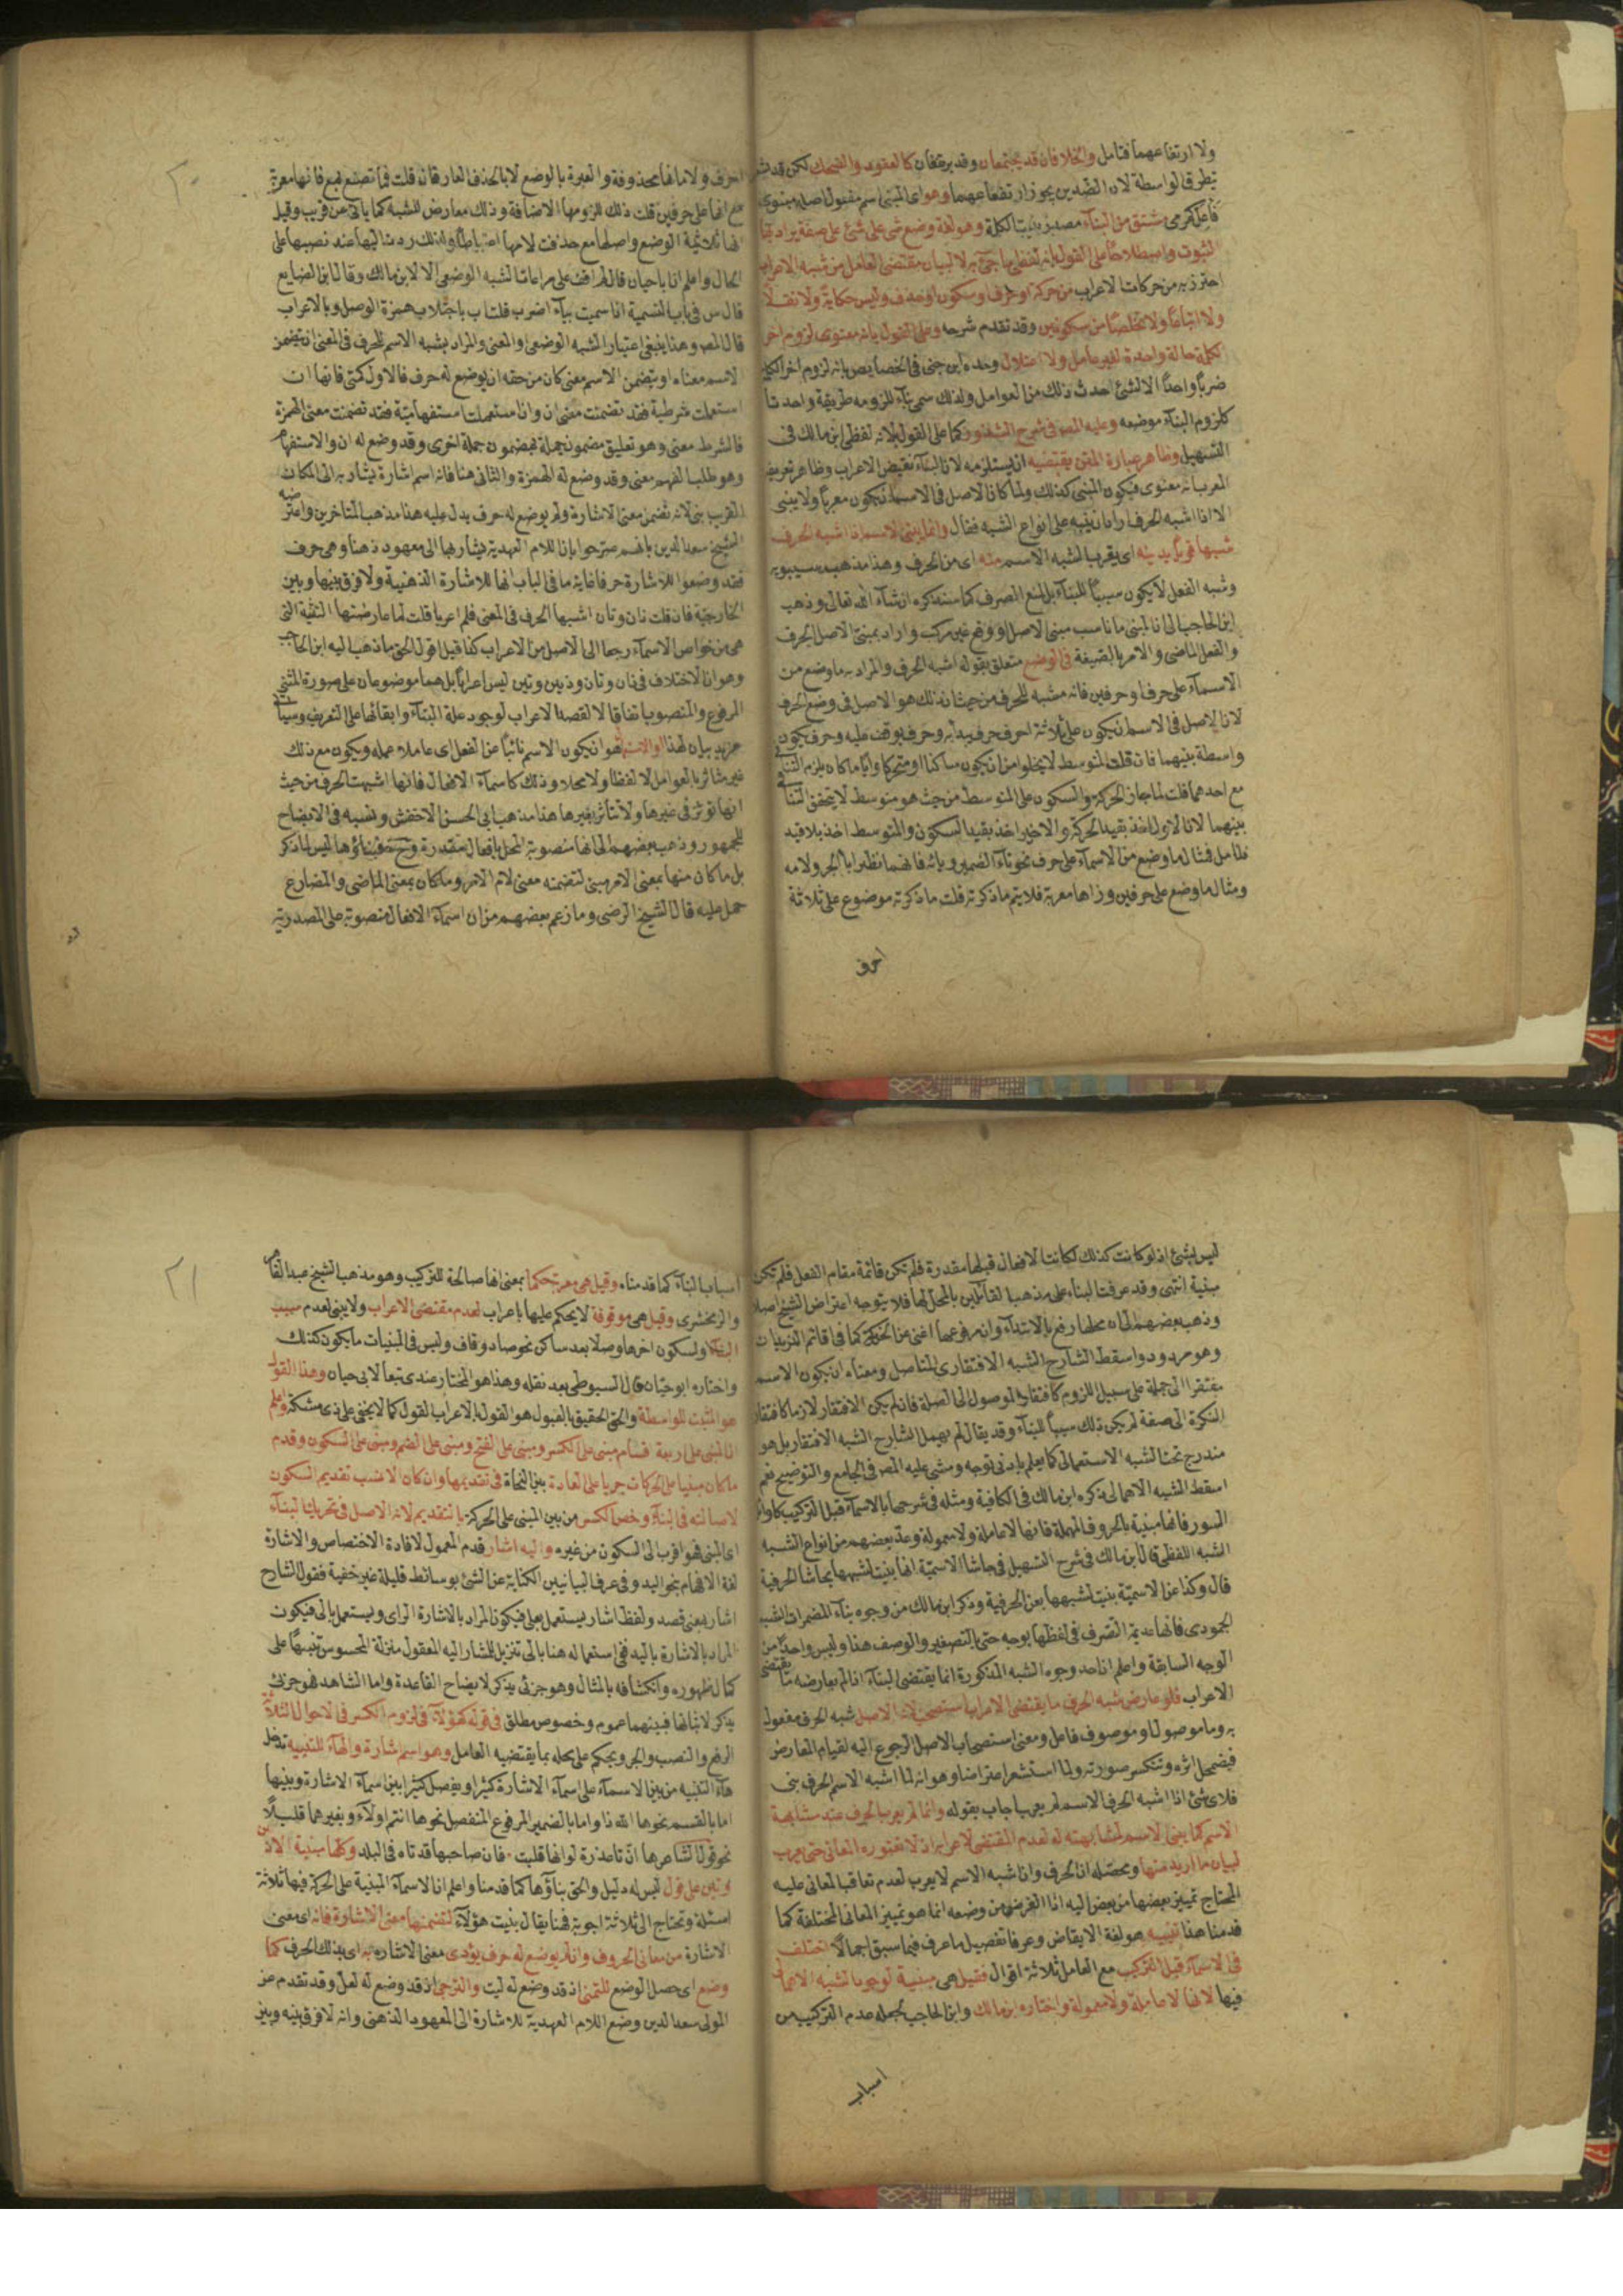 ولا ارتفاعهما فتامل والخلافان قد يجتمعان وقد يرتفعان كالعقود والضحك لكن قد
تطرق الواسطة لان الضدين يجوز ارتفاعهما وهو اى المبنى اسم مفعول اصله مبنوى
مشتق من البناء مصدر بنيت الكلمة وهو لغة وضع شئ على شئ على صفة يراد بها
الثبوت واصطلاحا على القول بانه لفظى ما جئ به لا لبيان مقتضى العامل من شبه الاعراب
احترز به من حركات الاعراب من حركة او حرف او سكون او حذف وليس حكاية ولا نقلا
ولا اتباعا ولا تخلصا من سكونين وقد تقدم شرحه وعلى القول بانه معنوى لزوم اخر
الكلمة حالة واحدة لغير عامل ولا اعتلال وحده ابن جنى فى الخصايص بانه لزوم اخر الكلمة
ضربا واحدا لا لشئ احدث ذلك من العوامل ولذلك سمى بناء للزومه طريقة واحدة
كلزوم البناء موضعه وعليه المص فى شرح الشذور كما على القول بانه لفظى ابن مالك فى
التسهيل وظاهر عبارة المتن يقتضيه اذ يستلزمه لان البناء نقيض الاعراب وظاهر تعريف
المعرب انه معنوى فيكون المبنى كذلك ولما كان الاصل فى الاسماء ان يكون معربا ولا يبنى
الا اذا اشبه الحرف اراد ان ينبه على انواع الشبه فقال وانما يبنى الاسم اذا اشبه الحرف
شبها قويا يدنيه اى يقرب الشبه الاسم منه اى من الحرف وهذا مذهب سيبويه
وشبه الفعل لا يكون سببا للبناء بل لمنع الصرف كما سنذكره ان شاء الله تعالى وذهب
ابن الحاجب الى ان المبنى ما ناسب مبنى الاصل او وقع غير مركب واراد بمبنى الاصل الحرف
والفعل الماضى والامر بالصيغة فى الوضع متعلق بقوله اشبه الحرف والمراد به ما وضع من
الاسماء على حرف او حرفين فانه مشبه للحرف من حيث ان ذلك هو الاصل فى وضع الحرف
لان الاصل فى الاسم ان يكون على ثلاثة احرف حرف يبدأ به وحرف يوقف عليه وحرف يكون
واسطة بينهما فان قلت المتوسط لا يخلو من ان يكون ساكنا او متحركا وايا ما كان يلزم التنافى
مع احدهما قلت لما جاز الحركة والسكون على المتوسط من حيث هو متوسط لا يتحقق التنافى
بينهما لان الاول اخذ بقيد الحركة والاخير اخذ بقيد السكون والمتوسط اخذ بلا قيد
فتامل فمثال ما وضع من الاسماء على حرف نحو تاء الضمير وبائه فانهما نظيرا باء الجر ولامه
ومثال ما وضع على حرفين وزاها معربة فلا يتم ما ذكرته قلت ما ذكرته موضوع على ثلاثة
احرف
احرف ولاماتها محذوفة والعبرة بالوضع لا بالحذف العارض فان قلت فما تصنع بمع فانها معربة
مع انها على حرفين قلت ذلك للزومها الاضافة وذلك معارض للشبه كما ياتى عن قريب وقيل
انها ثلاثية الوضع واصلها مع حذفت لامها اعتباطا ولذلك ردت اليها عند نصبها على
الحال واعلم ان ابا حيان قال لم اقف على مراعات الشبه الوضعى الا لابن مالك وقال ابن الضايع
قال س فى باب التسمية اذا سميت بباء اضرب قلت اب باجتلاب همزة الوصل وبالاعراب
قال المص وهذا ينبغى اعتبار الشبه الوضعى والمعنى والمراد بشبه الاسم للحرف فى المعنى ان يتضمن
الاسم معناه او يتضمن الاسم معنى كان من حقه ان يوضع له حرف فالاول كمتى فانها ان
استعملت شرطية فقد تضمنت معنى ان وان استعملت استفهامية فقد تضمنت معنى الهمزة
فالشرط معنى وهو تعليق مضمون جملة بمضمون جملة اخرى وقد وضع له ان والاستفهام
وهو طلب الفهم معنى وقد وضع له الهمزة والثانى هنا فانه اسم اشارة يشار به الى المكان
القريب بنى لانه تضمن معنى الاشارة ولم يوضع له حرف يدل عليه هذا مذهب المتاخرين واعترضه
الشيخ سعد الدين بانهم صرحوا بان اللام العهدية يشار بها الى معهود ذهنا وهى حرف
فقد وضعوا للاشارة حرفا غاية ما فى الباب انها للاشارة الذهنية ولا فرق بينها وبين
الخارجية فان قلت ذان وتان اشبها الحرف فى المعنى فلم اعربا قلت لما عارضتها التثنية التى
هى من خواص الاسماء رجعا الى الاصل من الاعراب كذا قيل اقول الحق ما ذهب اليه ابن الحاجب
وهو ان الاختلاف فى ذان وتان وذين وتين ليس اعرابا بل هما موضوعان على صورة المثنى
المرفوع والمنصوب اتفاقا لا لقصد الاعراب لوجود علة البناء وابقائها على التعريف وسياتى
مزيد بيان لهذا او الاستعمال هو ان يكون الاسم نائبا عن الفعل اى عاملا عمله ويكون مع ذلك
غير متاثر بالعوامل لا لفظا ولا محلا وذلك كاسماء الافعال فانها اشبهت الحرف من حيث
انها توثر فى غيرها ولا تتأثر بغيرها هذا مذهب ابى الحسن الاخفش ونسبه فى الايضاح
للجمهور وذهب بعضهم الى انها منصوبة المحل بافعال مقدرة وح فبناؤها ليس لما ذكر
بل ما كان منها بمعنى الامر مبنى لتضمنه معنى لام الامر وما كان بمعنى الماضى والمضارع
حمل عليه قال الشيخ الرضى وما زعم بعضهم من ان اسماء الافعال منصوبة على المصدرية
ليس بشئ اذ لو كانت كذلك لكانت الافعال قبلها مقدرة فلم تكن قائمة مقام الفعل فلم تكن
مبنية انتهى وقد عرفت البناء على مذهب القائلين بالمحل لها فلا يتوجه اعتراض الشيخ اصلا
وذهب بعضهم الى ان محلها رفع بالابتداء وان مرفوعها اغنى عن الخبر كما فى اقائم الزيدان
وهو مردود واسقط الشارح الشبه الافتقارى المتاصل ومعناه ان يكون الاسم
مفتقرا الى جملة على سبيل اللزوم كافتقار الموصول الى الصلة فان لم يكن الافتقار لازما كافتقار
النكرة الى صفة لم يكن ذلك سببا للبناء وقد يقال لم يهمل الشارح الشبه الافتقار بل هو
مندرج تحت الشبه الاستعمالى كما يعلم بادنى توجه ومشى عليه المص فى الجامع والتوضيح نعم
اسقط الشبه الاهمالى ذكره ابن مالك فى الكافية ومثله فى شرحها بالاسماء قبل التركيب كاوائل
السور فانها مبنية بالحروف المهملة فانها لا عاملة ولا معمولة وعد بعضهم من انواع الشبه
الشبه اللفظى قال ابن مالك فى شرح التسهيل فى حاشا الاسمية انها بنيت لشبهها بحاشا الحرفية
قال وكذا عن الاسمية بنيت لشبهها بعن الحرفية وذكر ابن مالك من وجوه بناء المضمرات الشبه
الجمودى فانها عديمة التصرف فى لفظها بوجه حتى بالتصغير والوصف هذا وليس واحدا من
الوجه السابقة واعلم ان احد وجوه الشبه المذكورة انما يقتضى البناء اذا لم يعارضه ما يقتضى
الاعراب فلو عارض شبه الحرف ما يقتضى الاعراب استصحب لانه الاصل شبه الحرف مفعول
به وما موصول او موصوف فاعل ومعنى استصحاب الاصل الرجوع اليه لقيام المعارض
فيضمحل اثره وتنكسر صورته ولما استشعر اعتراضا وهو انه لما اشبه الاسم الحرف بنى
فلاى شئ اذا اشبه الحرف الاسم لم يعرب اجاب بقوله وانما لم يعرب الحرف عند مشابهة
الاسم كما بنى الاسم لمشابهته له لعدم المقتضى لاعرابه اذ لا تعتوره المعانى حتى يعرب
لبيان ما اريد منها ومحصله ان الحرف وان اشبه الاسم لا يعرب لعدم تعاقب المعانى عليه
المحتاج تمييز بعضها من بعض اليه اذا الغرض من وضعه انما هو تمييز المعانى المختلفة كما
قدمنا هذا تنبيه هو لغة الايقاض وعرفا تفصيل ما عرف فيما سبق اجمالا اختلف
فى الاسماء قبل التركيب مع العامل ثلاثة اقوال فقيل هى مبنية لوجود الشبه الاهمالى
فيها لانها لا عاملة ولا معمولة واختاره ابن مالك وابن الحاجب لجعله عدم التركيب من
اسباب
اسباب البناء كما قدمناه وقيل هى معربة حكما بمعنى انها صالحة للتركيب وهو مذهب الشيخ عبد القاهر
والزمخشرى وقيل هى موقوفة لا يحكم عليها باعراب لعدم مقتضى الاعراب ولا بنى لعدم سبب
البناء ولسكون اخرها وصلا بعد ساكن نحو صاد وقاف وليس فى المبنيات ما يكون كذلك
واختاره ابو حيان قال السيوطى بعد نقله وهذا هو المختار عندى تبعا لابى حيان وهذا القول
هو المثبت للواسطة والحق الحقيق بالقبول هو القول بالاعراب القول كما لا يخفى على ذى مسكة واعلم
ان المبنى على اربعة اقسام مبنى على الكسر ومبنى على الفتح ومبنى على الضم ومبنى على السكون وقدم
ما كان مبنيا على الحركات جريا على العادة بين النحاة فى تقديمها وان كان الانسب تقديم السكون
لاصالته فى البناء وخص الكسر من بين المبنى على الحركة بالتقديم لانه الاصل فى تحريك البناء
اى المبنى فهو اقرب الى السكون من غيره واليه اشار قدم المعمول لافادة الاختصاص والاشارة
لغة الافهام بنحو اليد وفى عرف البيانيين الكناية عن الشئ بوسائط قليلة غير خفية فقول الشارح
اشار بمعنى قصد ولفظ اشار يستعمل بعلى فيكون المراد بالاشارة الراى ويستعمل بالى فيكون
المراد بالاشارة باليد ففى استعماله هنا بالى تنزيل للمشار اليه المعقول منزلة المحسوس تنبيها على
كمال ظهوره وانكشافه بالمثال وهو جزئى يذكر لايضاح القاعدة واما الشاهد فهو جزئى
يذكر لاثباتها فبينهما عموم وخصوص مطلق فى قوله كهؤلاء فى لزوم الكسر فى الاحوال الثلاثة
الرفع والنصب والجر ويحكم على محله بما يقتضيه العامل وهو اسم اشارة والهاء للتنبيه تدخل
هاء التنبيه من بين الاسماء على اسماء الاشارة كثيرا ويفصل كثيرا بين اسماء الاشارة وبينها
اما بالقسم نحو ها الله ذا واما بالضمير المرفوع المنفصل نحو ها انتم اولاء وبغيرهما قليلا
نحو قول الشاعر ها ان تا عذرة لو انها قبلت فان صاحبها قد تاه فى البلد وكلها مبنية الا ذين
وتين على قول ليس له دليل والحق بناؤها كما قدمنا واعلم ان الاسماء المبنية على الحركة فيها ثلاثة
اسئلة وتحتاج الى ثلاثة اجوبة فهنا يقال بنيت هؤلاء لتضمنها معنى الاشارة فانه اى معنى
الاشارة من معانى الحروف وان لم يوضع له حرف يؤدى معنى الاشارة به اى بذلك الحرف كما
وضع اى حصل الوضع للتمنى اذ قد وضع له ليت والترجى اذ قد وضع له لعل وقد تقدم عن
المولى سعد الدين وضع اللام العهدية للاشارة الى المعهود الذهنى وانه لا فرق بينه وبين